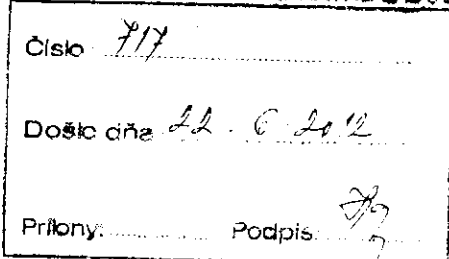 Číslo 717
Došlo dňa 22. 6 2012
Prílohy: Podpis: